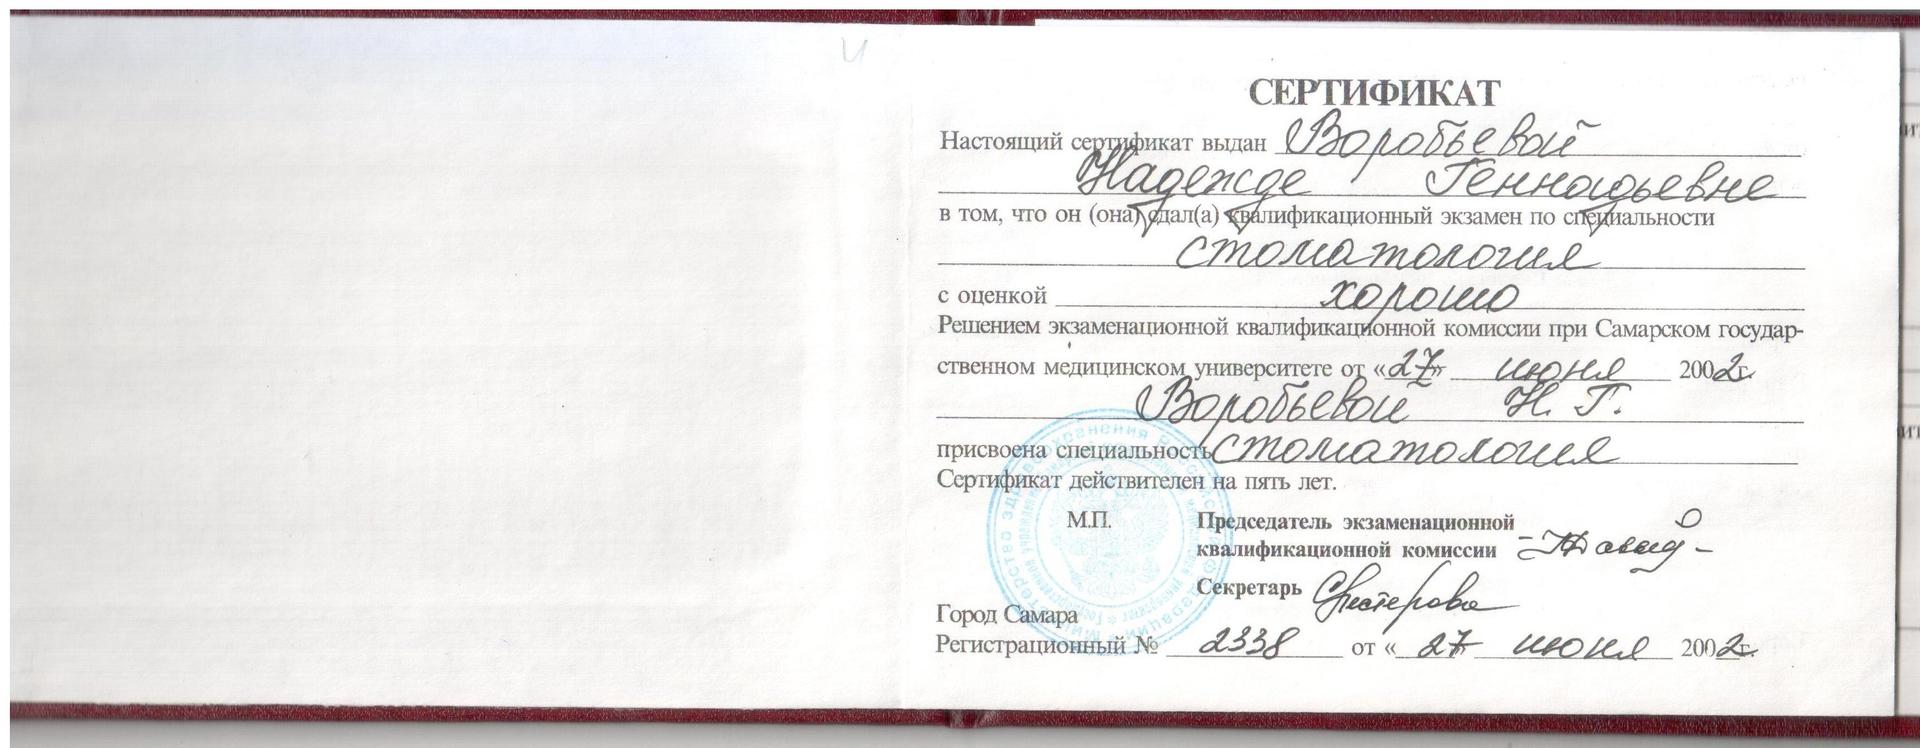 СЕРТИФИКАТ
Настоящий сертификат выдан Воробьевой
Надежде Геннадьевне
в том, что он (она) сдал(а) квалификационный экзамен по специальности
стоматология
с оценкой хорошо
Решением экзаменационной квалификационной комиссии при Самарском государ-
ственном медицинском университете от «27» июня 2002г.
Воробьевой Н. Г.
присвоена специальность стоматология
Сертификат действителен на пять лет.
М.П. Председатель экзаменационной
квалификационной комиссии
Секретарь
Город Самара
Регистрационный № 2338 от «27» июня 2002г.
Министерство здравоохранения Российской Федерации